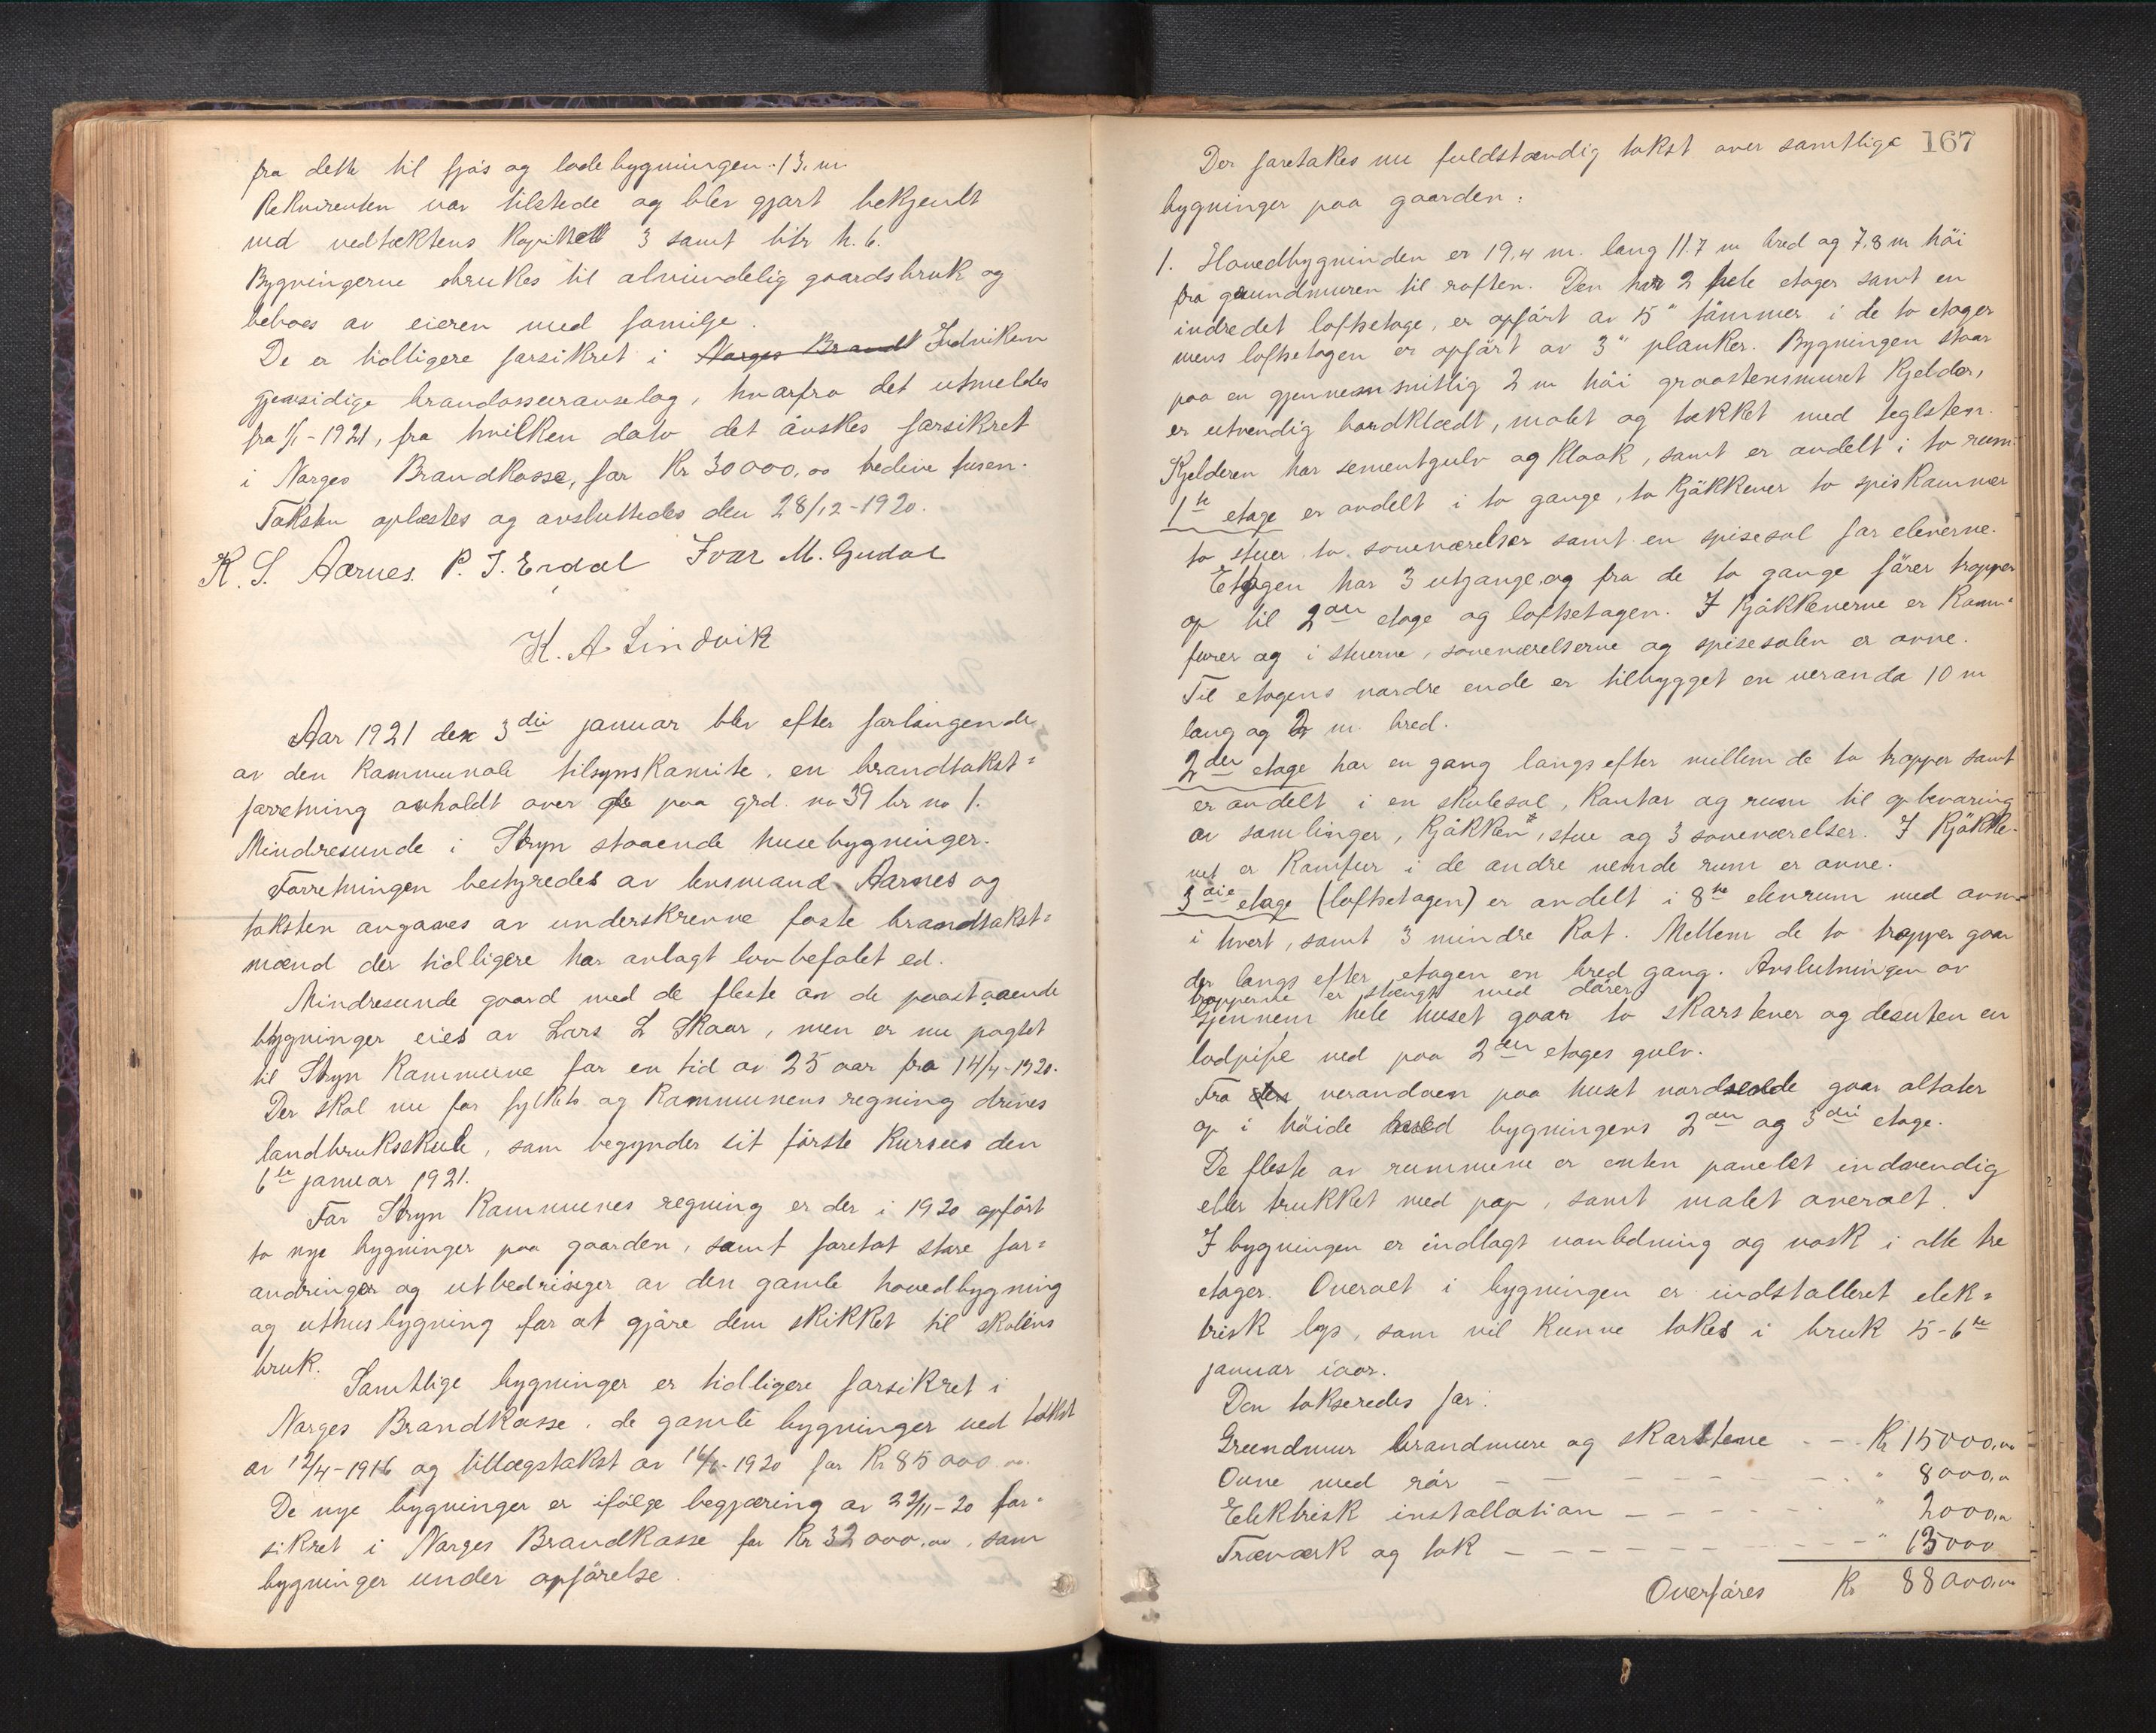 fra dette til fjøs og ladebygningen. 13. m.
Rekvirenten var tilstede og blev gjort bekjendt
med vedtæktens Kapittel 3 samt litr h. 6.
Bygningerne brukes til almindelig gaardsbruk og
beboes av eieren med familje.
De er tidligere forsikret i Norges Brandk Indviken
gjensidige brandassuranselag, hvorfra det utmeldes
fra 1/1-1921, fra hvilken dato det ønskes forsikret
i Norges Brandkasse, for Kr 30000,00 tredive tusen.
Taksten oplæstes og avsluttedes den 28/12-1920.
K. S. Aarnes. P. J. Erdal Ivar M. Gudal
K. A Lindvik
Aar 1921 den 3die januar blev efter forlangende
av den kommunale tilsynskomite, en brandtakst=
forretning avholdt over de paa grd. no 39 br no 1.
Mindresunde i Stryn staaende husebygninger.
Forretningen bestyredes av lensmand Aarnes og
taksten avgaves av underskrevne faste brandtakst=
mænd der tidligere har avlagt lovbefalet ed.
Mindresunde gaard med de fleste av de paastaaende
bygninger eies av Lars L Skaar, men er nu pagtet
til Stryn Kommune for en tid av 25 aar fra 14/4-1920.
Der skal nu for fylkets og Kommunens regning drives
landbruksskule, som begynder sit første Kursus den
6te januar 1921.
For Stryn Kommunes regning er der i 1920 opført
to nye bygninger paa gaarden, samt foretat store for=
andringer og utbedringer av den gamle hovedbygning
og uthusbygning for at gjøre dem skikket til skolens
bruk.
Samtlige bygninger er tidligere forsikret i
Norges Brandkasse, de gamle bygninger ved takst
av 12/4-1916 og tillægstakst av 16/6-1920 for Kr 85000.00.
De nye bygninger er ifølge begjæring av 22/11-20 for=
sikret i Norges Brandkasse for Kr 32000.00, som
bygninger under opførelse.
167
Der foretakes nu fuldstændig takst over samtlige
bygninger paa gaarden:
1. Hovedbygninden er 19,4 m. lang 11.7 m bred og 7,8 m høi
fra grundmuren til raften. Den har 2 hele etager samt en
indredet loftsetage, er opført av 5" tømmer i de to etager
mens loftsetagen er opført av 3" planker. Bygningen staar
paa en gjennemsnitlig 2 m høi graastensmuret Kjelder,
er utvendig bordklædt, malet og tækket med teglsten.
Kjelderen har sementgulv og kloak, samt er avdelt i to rum.
1ste etage er avdelt i to gange, to kjøkkener to spiskammer
to stuer to soveværelser samt en spisesal for eleverne.
Etagen har 3 utgange, og fra de to gange fører trapper
op til 2den etage og loftsetagen. I kjøkkenerne er kom=
furer og i stuerne, soveværelserne og spisesalen er ovne.
Til etagens nordre ende er tilbygget en veranda 10 m
lang og 2 m. bred.
2den etage har en gang langs efter mellem de to trapper samt
er avdelt i en skolesal, kontor og rum til opbevaring
av samlinger, kjøkken, stue og 3 soveværelser. I kjøkke=
net er komfur i de andre nevnde rum er ovne.
3die etage (loftsetagen) er avdelt i 8te elevrum med ovn
i hvert, samt 3 mindre kot. Mellem de to trapper gaar
der langs efter etagen en bred gang. Avslutningen av
trapperne er stængt med dører
Gjennem hele huset gaar to skorstener og desuten en
lodpipe ned paa 2den etages gulv.
Fra den verandaen paa huset nordsende gaar altaner
op i høide med bygningens 2den og 3die etage.
De fleste av rummene er enten panelet indvendig
eller trukket med pap, samt malet overalt.
I bygningen er indlagt vanledning og vask i alle tre
etager. Overalt i bygningen er indstalleret elek=
trisk lys, som vil kunne takes i bruk 5-6te
januar iaar.
Den takseredes for:
Grundmur brandmure og skorstene - - Kr 15000,00
Ovne med rør - - - - " 8000,00
Elektrisk installation - - - - " 2000,00
Træværk og tak - - - - " 63000
Overføres Kr 88000,00